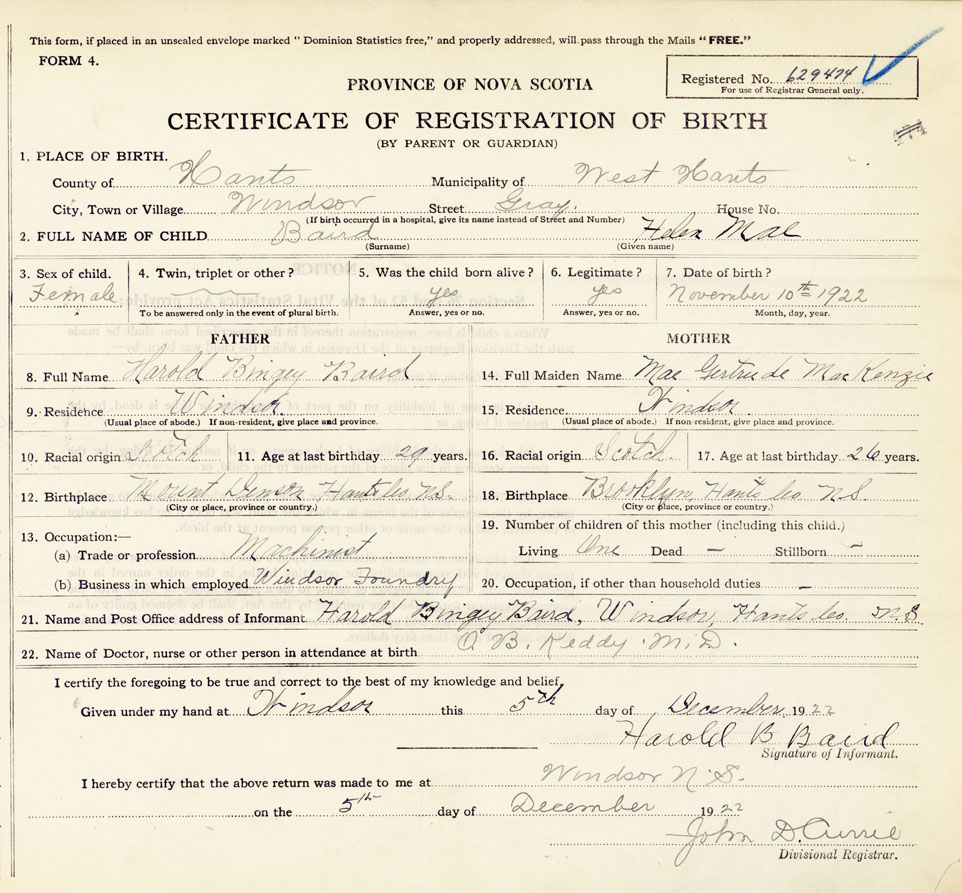 This form, if placed in an unsealed envelope marked "Dominion Statistics free," and properly addressed, will pass through the Mails "FREE."
FORM 4.
Registered No. 629474
For use of Registrar General only.
PROVINCE OF NOVA SCOTIA
CERTIFICATE OF REGISTRATION OF BIRTH
(BY PARENT OR GUARDIAN)
1. PLACE OF BIRTH.
County of Hants Municipality of West Hants
City, Town or Village Windsor Street Gray. House No.
(If birth occurred in a hospital, give its name instead of Street and Number)
2. FULL NAME OF CHILD Baird Helen Mae
(Surname) (Given name)
3. Sex of child. 4. Twin, triplet or other? 5. Was the child born alive? 6. Legitimate? 7. Date of birth?
Female yes yes November 10th 1922
To be answered only in the event of plural birth. Answer, yes or no. Answer, yes or no. Month, day, year.
FATHER MOTHER
8. Full Name Harold Bingey Baird 14. Full Maiden Name Mae Gertrude MacKenzie
9. Residence Windsor. 15. Residence Windsor
(Usual place of abode.) If non-resident, give place and province. (Usual place of abode.) If non-resident, give place and province.
10. Racial origin Scotch 11. Age at last birthday 29 years. 16. Racial origin Scotch. 17. Age at last birthday 26 years.
12. Birthplace Mount Denson, Hants Co. N.S. 18. Birthplace Brooklyn, Hants Co. N.S.
(City or place, province or country.) (City or place, province or country.)
19. Number of children of this mother (including this child.)
13. Occupation:—
(a) Trade or profession Machinist Living One Dead — Stillborn —
(b) Business in which employed Windsor Foundry 20. Occupation, if other than household duties —
21. Name and Post Office address of Informant Harold Bingey Baird, Windsor, Hants Co. N.S.
22. Name of Doctor, nurse or other person in attendance at birth O B. Keddy M.D.
I certify the foregoing to be true and correct to the best of my knowledge and belief.
Given under my hand at Windsor this 5th day of December 1922
Harold B Baird
Signature of Informant.
I hereby certify that the above return was made to me at Windsor N.S.
on the 5th day of December 1922
John D. Currie
Divisional Registrar.